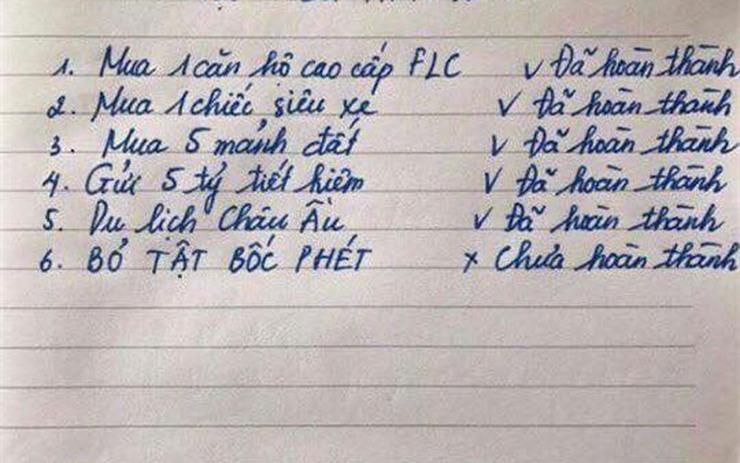 1. Mua 1 căn hộ cao cấp FLC v Đã hoàn thành
2. Mua 1 chiếc siêu xe v Đã hoàn thành
3. Mua 5 mảnh đất v Đã hoàn thành
4. Gửi 5 tỷ tiết kiệm v Đã hoàn thành
5. Du lịch Châu Âu v Đã hoàn thành
6. BỎ TẬT BỐC PHÉT x Chưa hoàn thành